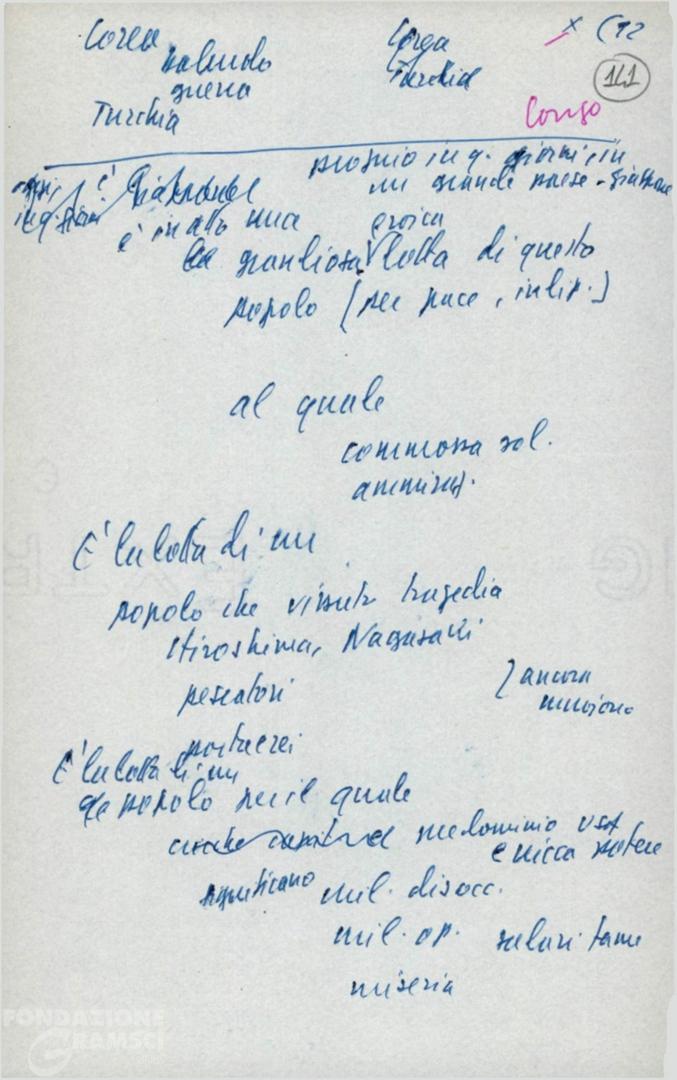 Corea
Corea
x C12
salendo
Turchia
141
guerra
Turchia
Congo
proprio in q. giorni, in
oggi, è Giappone
un grande paese - Giappone
in q. giorni
è in atto una eroica
la grandiosa lotta di questo
popolo (per pace, indip.)
al quale
commossa sol.
ammiraz.
È la lotta di un
popolo che vissuto tragedia
Hiroshima, Nagasaki
pescatori
ancora
muoiono
portaerei
È la lotta di un
popolo per il quale
predominio USA
e ricca potere
significano mil. disocc.
mil. op. salari fame
miseria
FONDAZIONE
GRAMSCI